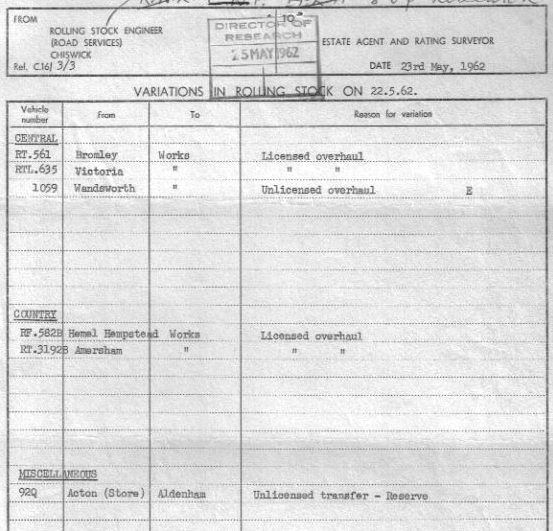 FROM
ROLLING STOCK ENGINEER
(ROAD SERVICES)
CHISWICK
Ref. C16/ 3/3
DIRECTOR OF
RESEARCH
25 MAY 1962
TO
ESTATE AGENT AND RATING SURVEYOR
DATE 23rd May, 1962
VARIATIONS IN ROLLING STOCK ON 22.5.62.
Vehicle number From To Reason for variation
CENTRAL
RT.561 Bromley Works Licensed overhaul
RTL.635 Victoria " " "
1059 Wandsworth " Unlicensed overhaul E
COUNTRY
RF.582B Hemel Hempstead Works Licensed overhaul
RT.3192B Amersham " " "
MISCELLANEOUS
92Q Acton (Store) Aldenham Unlicensed transfer - Reserve